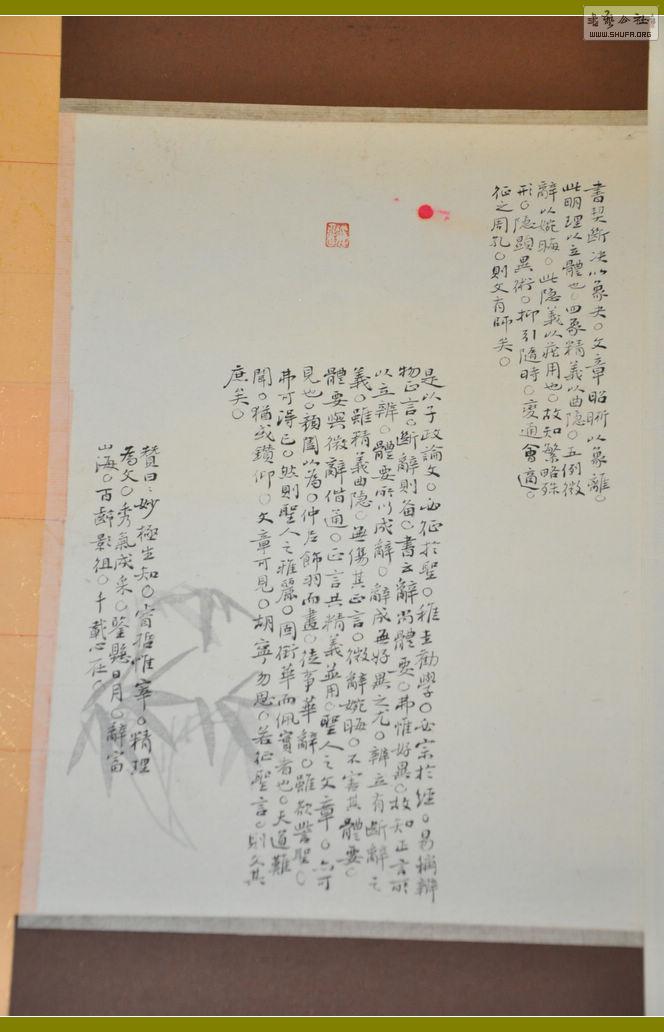 書契斷决以象夬。文章昭晰以象離。
此明理以立體也。四象精義以曲隐。五例微
辭以婉晦。此隐義以藏用也。故知繁略殊
形。隐顯異術。抑引隨時。變通會商。
征之周孔。則文有師矣。
是以子政論文。必征於聖。稚圭勸學。必宗於經。易稱辯
物正言。斷辭則备。書云辭尚體要。弗惟好異。故知正言所
以立辨。體要所以成辭。辭成無好異之尤。辨立有斷辭之
義。雖精義曲隐。無傷其正言。微辭婉晦。不害其體要。
體要與微辭偕通。正言共精義並用。聖人之文章。亦可
見也。顔闔以為。仲尼飾羽而畫。徒事華辭。雖欲訾聖。
弗可得已。然則聖人之雅麗。固銜華而佩實者也。天道難
聞。猶或鑽仰。文章可見。胡寧勿思。若征聖言。則文其
庶矣。
贊曰：妙極生知。睿哲惟宰。精理
為文。秀氣成采。鉴懸日月。辭富
山海。百齡影徂。千載心在。
書藝公社
WWW.SHUFA.ORG